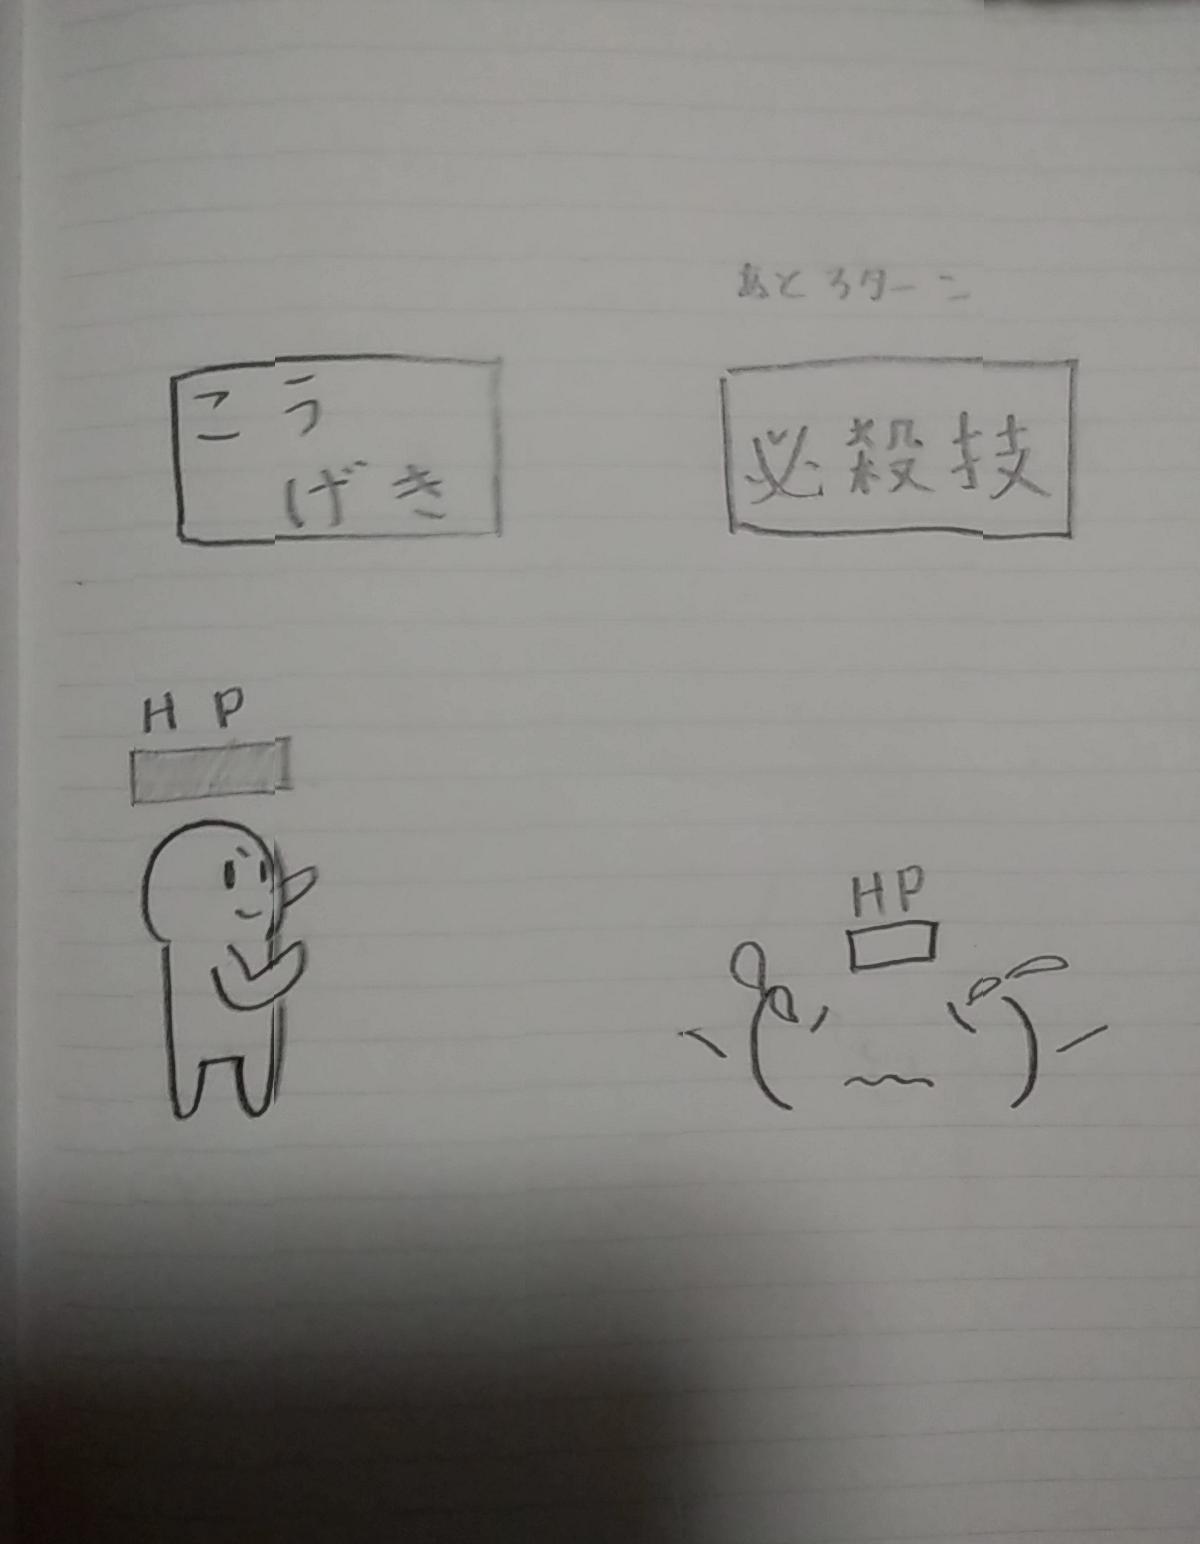 あと3ターン
こう
げき
必殺技
HP
HP